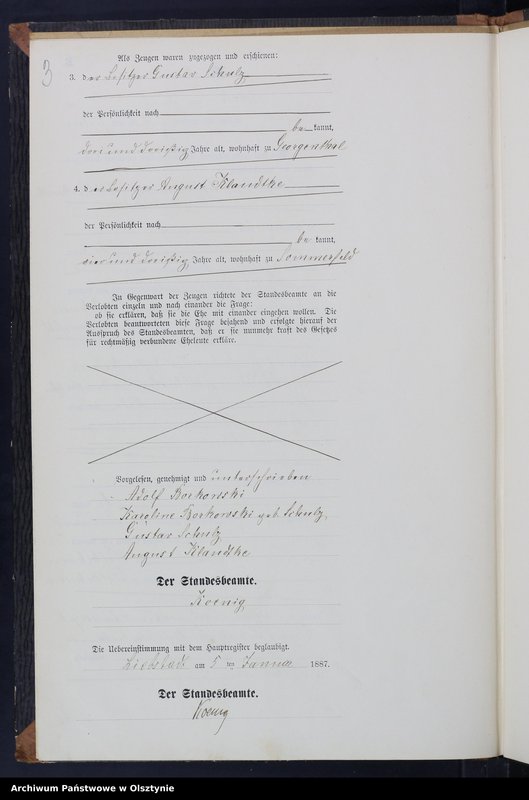 3
Als Zeugen waren zugezogen und erschienen:
3. der Besitzer Gustav Schulz
der Persönlichkeit nach
be kannt,
drei und dreißig Jahre alt, wohnhaft zu Georgenthal
4. der Besitzer August Klandtke
der Persönlichkeit nach
be kannt,
vier und dreißig Jahre alt, wohnhaft zu Sommerfeld
In Gegenwart der Zeugen richtete der Standesbeamte an die
Verlobten einzeln und nach einander die Frage:
ob sie erklären, daß sie die Ehe mit einander eingehen wollen. Die
Verlobten beantworteten diese Frage bejahend und erfolgte hierauf der
Ausspruch des Standesbeamten, daß er sie nunmehr kraft des Gesetzes
für rechtmäßig verbundene Eheleute erkläre.
Vorgelesen, genehmigt und unterschrieben
Adolf Borkowski
Karoline Borkowski geb. Schulz
Gustav Schulz
August Klandtke
Der Standesbeamte.
Koenig
Die Uebereinstimmung mit dem Hauptregister beglaubigt.
Liebstadt am 5 ten Januar 1887.
Der Standesbeamte.
Koenig
Archiwum Państwowe w Olsztynie